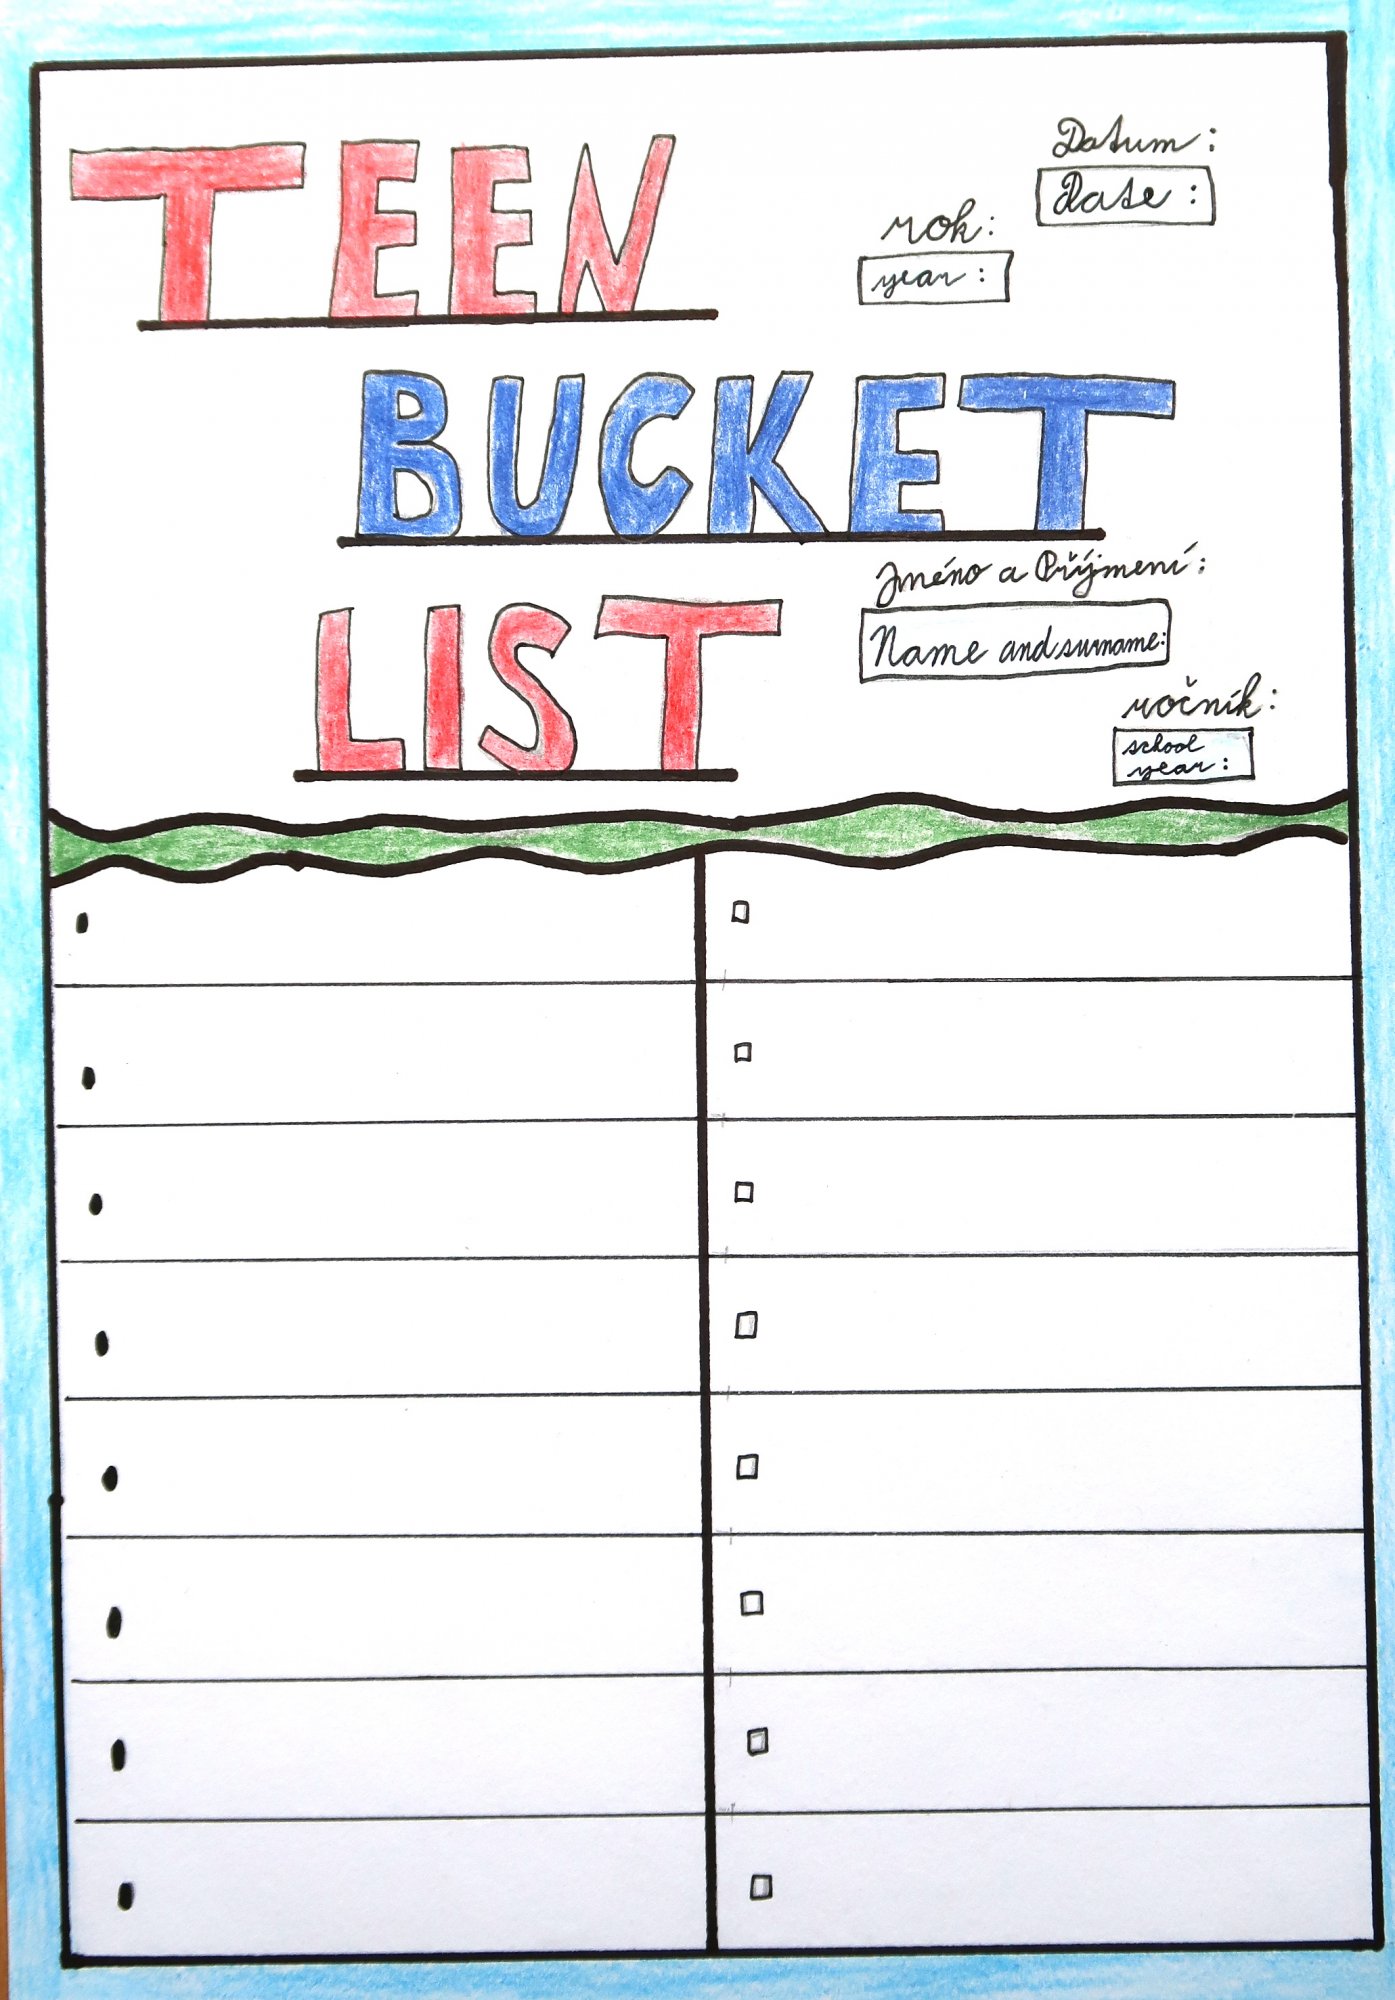 TEEN
Datum:
Date:
rok:
year:
BUCKET
Jméno a Příjmení:
Name and surname:
LIST
ročník:
school
year: